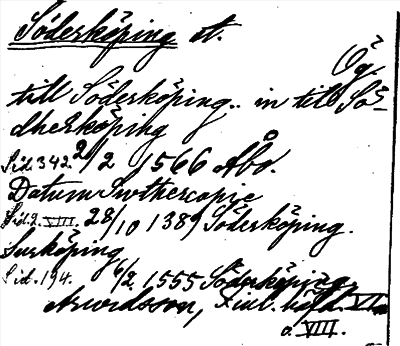 Söderköping st.
Ög.
till Söderköping.. in till Sö-
dherköping
Sid. 342. 2/2 1566 Åbo.
Datum Swthercopie
Sid. 2. VIII. 28/10 1389 Söderköping.
Surköping
Sid. 194. 6/2. 1555 Söderköping
Arwidsson, Finl. häfd. VII
o. VIII.